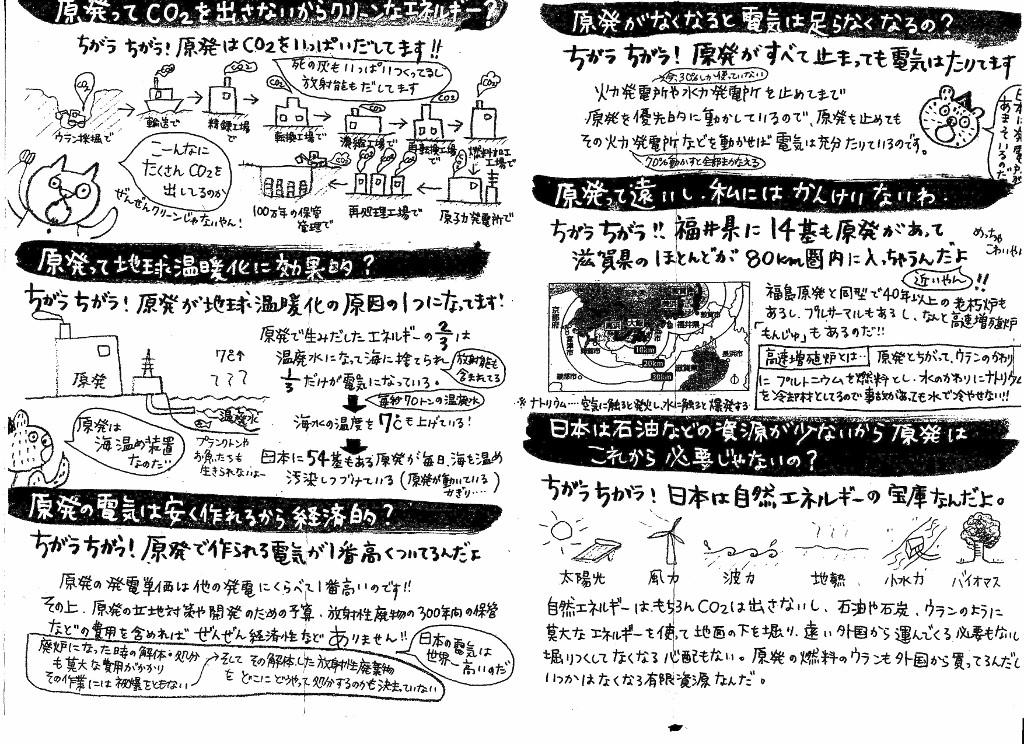 原発ってCO2を出さないからクリーンなエネルギー?
ちがう ちがう! 原発はCO2をいっぱいだしてます!!
死の灰もいっぱいつくってるし
放射能もだしてます
CO2
CO2
CO2
CO2
CO2
CO2
ウラン採掘で
輸送で
精錬工場で
転換工場で
濃縮工場で
再転換工場で
燃料加工工場で
こーんなに
たくさんCO2を
出してるのか
ぜんぜんクリーンじゃないやん!
100万年の保管管理で
再処理工場で
原子力発電所で
原発って地球温暖化に効果的?
ちがう ちがう! 原発が地球温暖化の原因の1つになってます!
原発
7℃↑
???
温廃水
原発は
海温め装置
なのだ!!
プランクトンや
お魚たちも
生きられないよ〜
原発で生みだしたエネルギーの2/3は
温廃水になって海に捨てられ
1/3だけが電気になっている。
放射能も
含まれてる
毎秒70トンの温廃水
海水の温度を7℃も上げている!
日本に54基もある原発が毎日、海を温め
汚染しつづけている(原発が動いているかぎり…)
原発の電気は安く作れるから経済的?
ちがう ちがう! 原発で作られる電気が1番高くついてるんだよ
原発の発電単価は他の発電にくらべて1番高いのです!!
その上、原発の立地対策や開発のための予算、放射性廃物の300年間の保管
などの費用を含めれば ぜんぜん経済性など ありません!!
日本の電気は
世界一
高いのだ
廃炉になった時の解体・処分
も莫大な費用がかかり
その作業には被曝をともない
そして その解体した放射性廃棄物
を どこに どうやって処分するのかも決まっていない
原発がなくなると電気は足らなくなるの?
ちがう ちがう! 原発がすべて止まっても電気はたりてます
今、30%しか使っていない
火力発電所や水力発電所を止めてまで
原発を優先的に動かしているので、原発を止めても
その火力発電所などを動かせば電気は充分たりているのです。
70%動かすと全部まかなえる
あまっているのだ
原発って遠いし、私にはかんけいないわ。
ちがう ちがう!! 福井県に14基も原発があって
滋賀県のほとんどが80km圏内に入っちゃうんだよ
めっちゃ
こわいやん
近いやん!!
京都府
福井県
滋賀県
長浜市
10km
20km
30km
福島原発と同型で40年以上の老朽炉も
あるし、プルサーマルもあるし、なんと高速増殖炉
「もんじゅ」もあるのだ!!
高速増殖炉とは… 原発とちがって、ウランのかわり
に プルトニウムを燃料とし、水のかわりにナトリウム
を冷却材としてるので事故があっても水で冷やせない!!
※ナトリウム…空気に触ると発火し、水に触ると爆発する
日本は石油などの資源が少ないから原発は
これから必要じゃないの?
ちがう ちがう! 日本は自然エネルギーの宝庫なんだよ。
太陽光
風力
波力
地熱
小水力
バイオマス
自然エネルギーは、もちろんCO2は出さないし、石油や石炭、ウランのように
莫大なエネルギーを使って地面の下を掘り、遠い外国から運んでくる必要もないし
掘りつくしてなくなる心配もない。原発の燃料のウランも外国から買ってるんだし
いつかはなくなる有限資源なんだ。